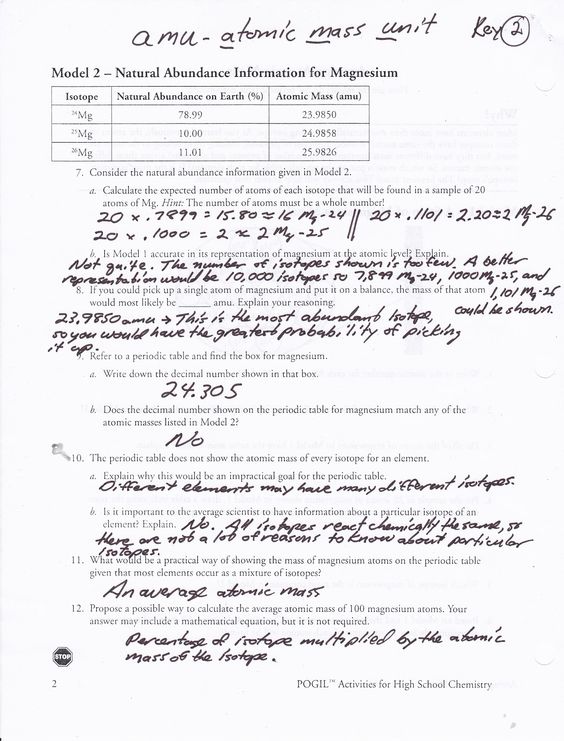 amu - atomic mass unit Key 2
Model 2 – Natural Abundance Information for Magnesium
Isotope Natural Abundance on Earth (%) Atomic Mass (amu)
²⁴Mg 78.99 23.9850
²⁵Mg 10.00 24.9858
²⁶Mg 11.01 25.9826
7. Consider the natural abundance information given in Model 2.
a. Calculate the expected number of atoms of each isotope that will be found in a sample of 20
atoms of Mg. Hint: The number of atoms must be a whole number!
20 x .7899 = 15.80 ≈ 16 Mg-24 || 20 x .1101 = 2.20 ≈ 2 Mg-26
20 x .1000 = 2 ≈ 2 Mg-25
b. Is Model 1 accurate in its representation of magnesium at the atomic level? Explain.
Not quite. The number of isotopes shown is too few. A better
representation would be 10,000 isotopes so 7,899 Mg-24, 1000 Mg-25, and
1,101 Mg-26
could be shown.
8. If you could pick up a single atom of magnesium and put it on a balance, the mass of that atom
would most likely be ______ amu. Explain your reasoning.
23.9850 amu → This is the most abundant isotope,
so you would have the greatest probability of picking
it up.
9. Refer to a periodic table and find the box for magnesium.
a. Write down the decimal number shown in that box.
24.305
b. Does the decimal number shown on the periodic table for magnesium match any of the
atomic masses listed in Model 2?
No
10. The periodic table does not show the atomic mass of every isotope for an element.
a. Explain why this would be an impractical goal for the periodic table.
Different elements may have many different isotopes.
b. Is it important to the average scientist to have information about a particular isotope of an
element? Explain. No. All isotopes react chemically the same, so
there are not a lot of reasons to know about particular
isotopes.
11. What would be a practical way of showing the mass of magnesium atoms on the periodic table
given that most elements occur as a mixture of isotopes?
An average atomic mass
12. Propose a possible way to calculate the average atomic mass of 100 magnesium atoms. Your
answer may include a mathematical equation, but it is not required.
Percentage of isotope multiplied by the atomic
mass of the isotope.
STOP
2 POGIL™ Activities for High School Chemistry